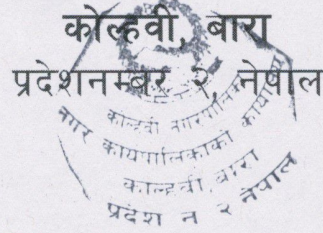 कोल्हवी, बारा
प्रदेशनम्बर २, नेपाल
कोल्हवी नगरपालिका
नगर कार्यपालिकाको कार्यालय
कोल्हवी, बारा
प्रदेश न २ नेपाल